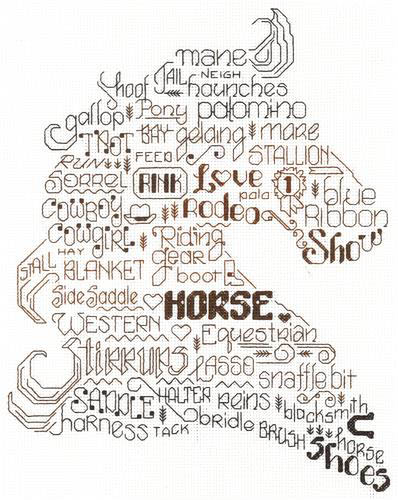 mane
hoof TAIL NEIGH haunches
gallop Pony palomino
TROT BAY gelding mare
RUN FEED STALLION
Sorrel RINK Love 1 blue
COWBOY Rodeo Ribbon
COWGIRL Riding Show
HAY gear
STALL BLANKET boot
Side Saddle HORSE
WESTERN Equestrian
Stirrups LASSO snaffle bit
SADDLE HALTER Reins blacksmith
harness TACK bridle BRUSH horse
shoes